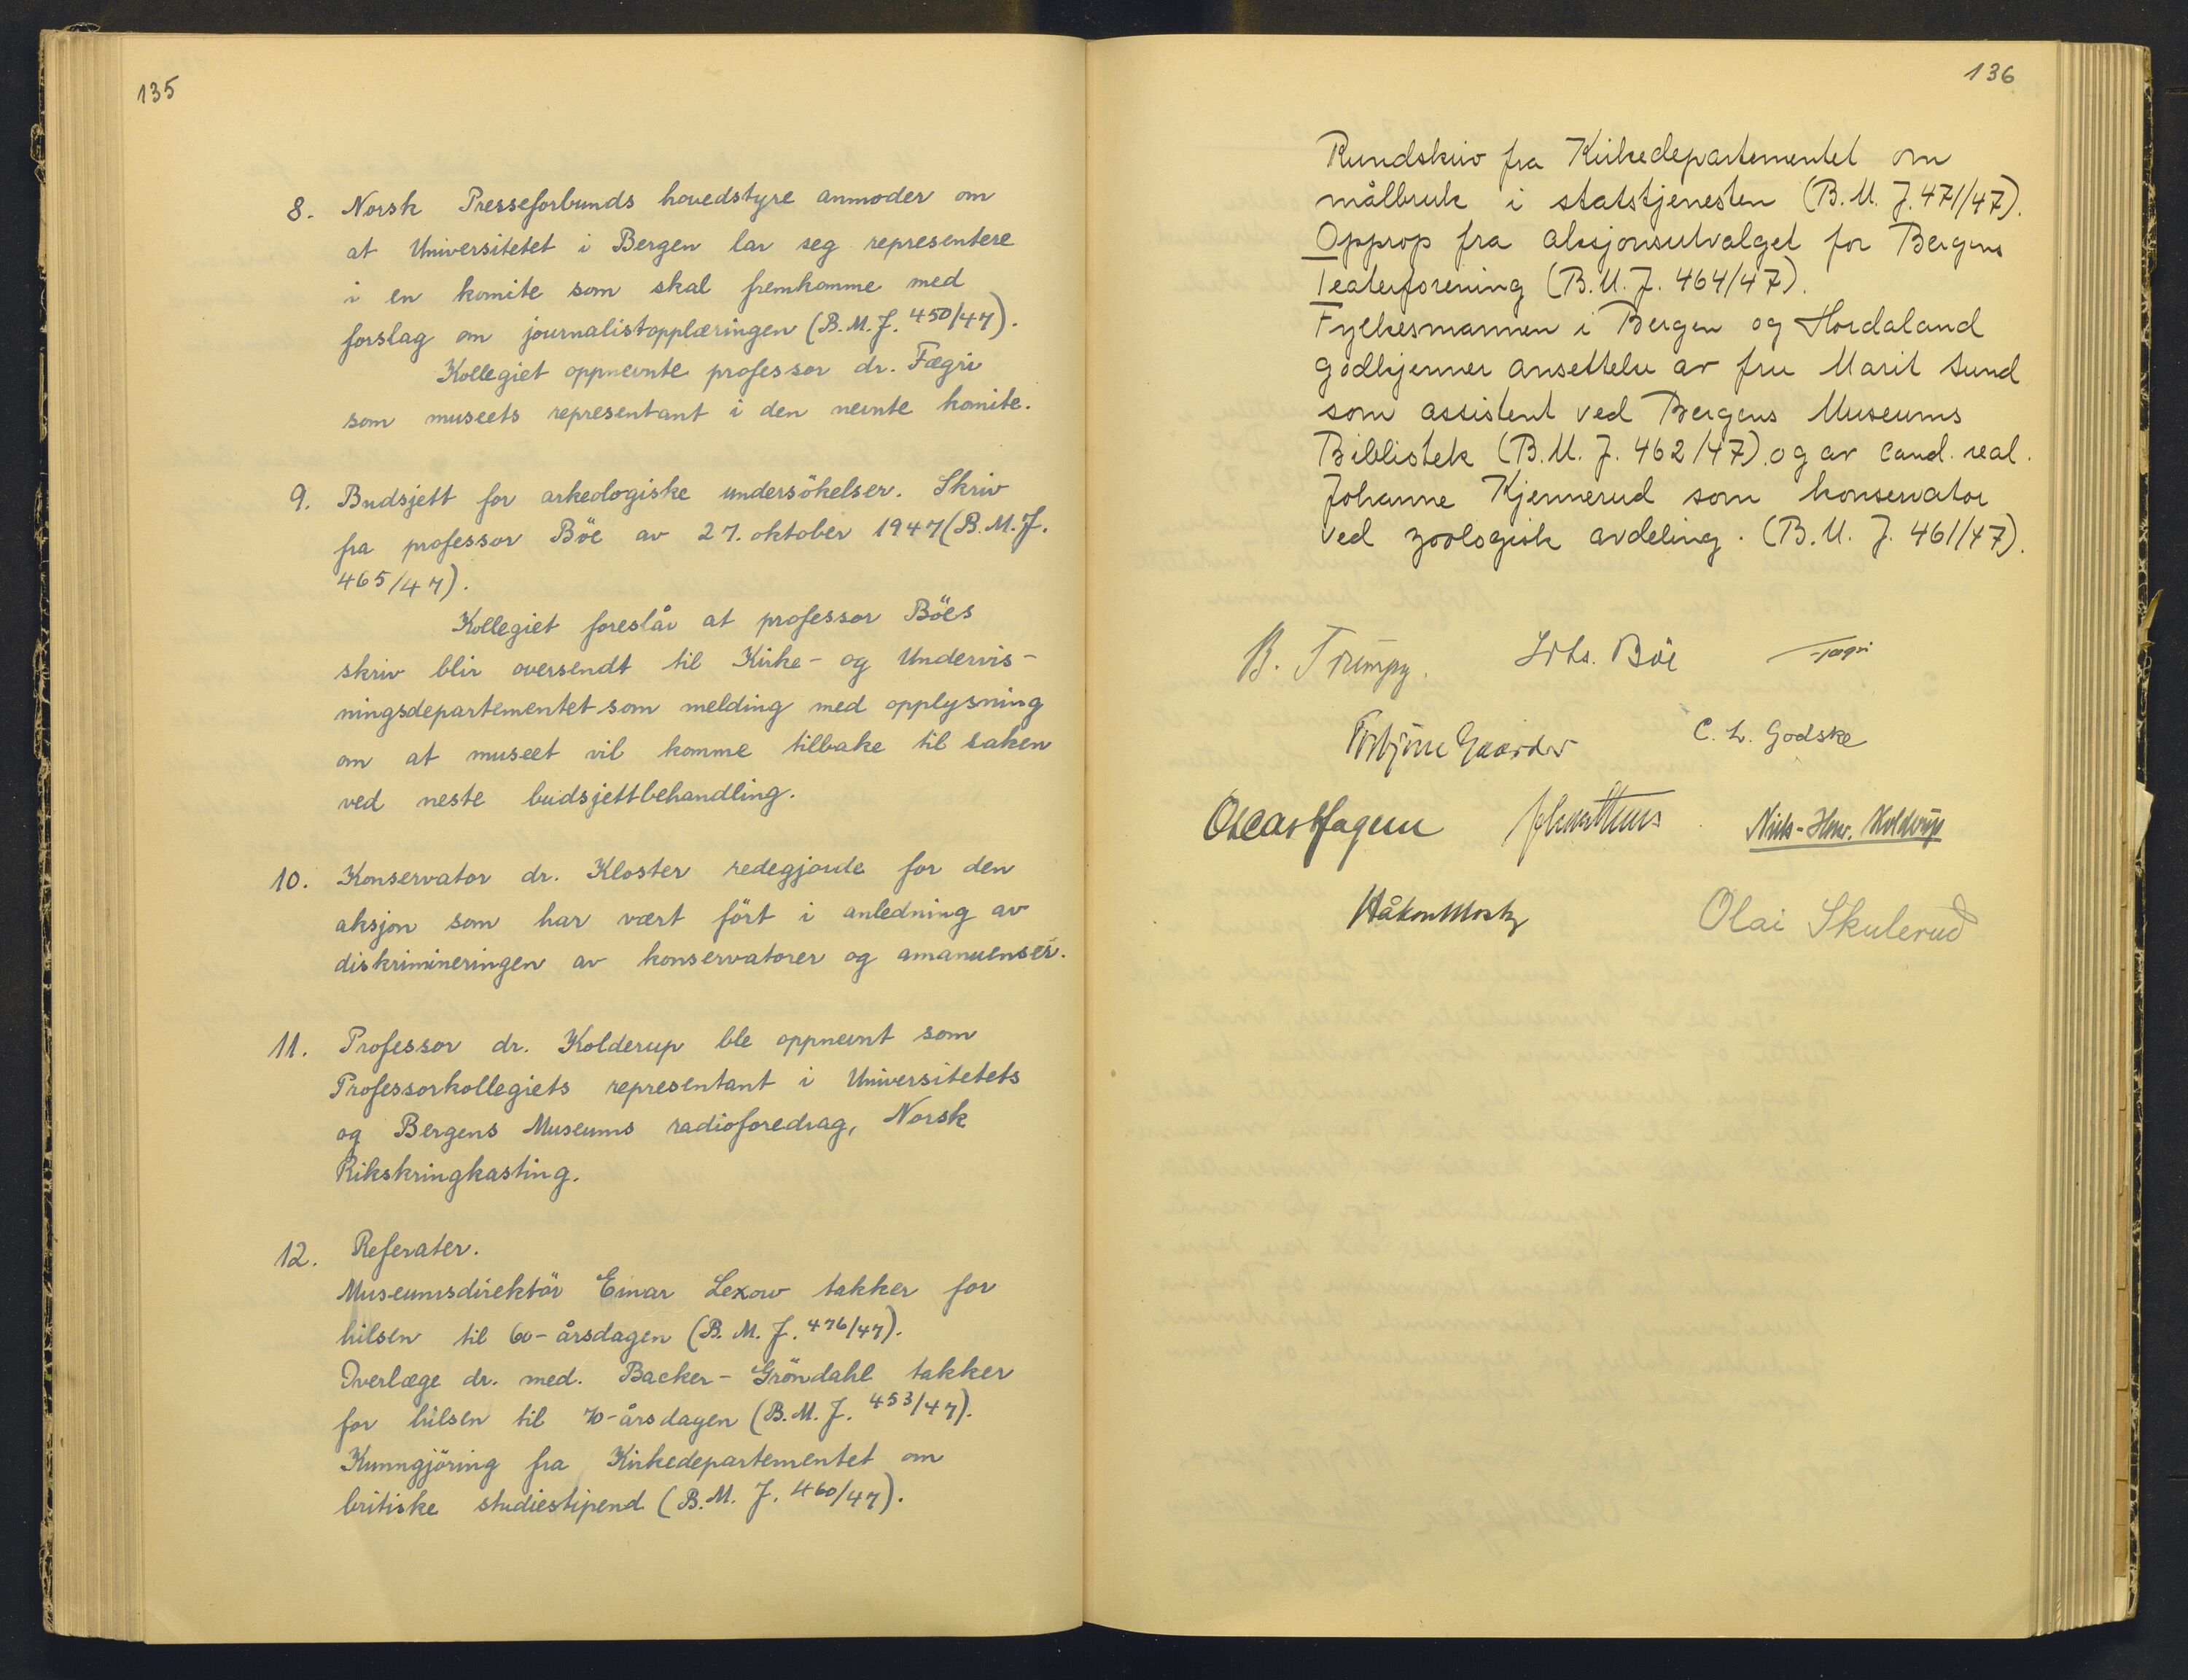 135
8. Norsk Presseforbunds hovedstyre anmoder om
at Universitetet i Bergen lar seg representere
i en komite som skal fremkomme med
forslag om journalistopplæringen (B.M.J. 450/47).
Kollegiet oppnevnte professor dr. Fægri
som museets representant i den nevnte komite.
9. Budsjett for arkeologiske undersökelser. Skriv
fra professor Böe av 27. oktober 1947 (B.M.J.
465/47).
Kollegiet foreslår at professor Böes
skriv blir oversendt til Kirke- og Undervis-
ningsdepartementet som melding med opplysning
om at museet vil komme tilbake til saken
ved neste budsjettbehandling.
10. Konservator dr. Kloster redegjorde for den
aksjon som har vært fört i anledning av
diskrimineringen av konservatorer og amanuenser.
11. Professor dr. Kolderup ble oppnevnt som
Professorkollegiets representant i Universitetets
og Bergens Museums radioforedrag, Norsk
Rikskringkasting.
12. Referater.
Museumsdirektör Einar Lexow takker for
hilsen til 60-årsdagen (B.M.J. 476/47).
Overlæge dr. med. Backer-Gröndahl takker
for hilsen til 70-årsdagen (B.M.J. 453/47).
Kunngjöring fra Kirkedepartementet om
britiske studiestipend (B.M.J. 460/47).
136
Rundskriv fra Kirkedepartementet om
målbruk i statstjenesten (B.M.J. 471/47).
Opprop fra aksjonsutvalget for Bergens
Teaterforening (B.M.J. 464/47).
Fylkesmannen i Bergen og Hordaland
godkjenner ansettelse av fru Marit Sund
som assistent ved Bergens Museums
Bibliotek (B.M.J. 462/47) og av cand. real.
Johanne Kjennerud som konservator
ved zoologisk avdeling. (B.M.J. 461/47).
B. Trumpy. Johs. Böe Fægri
Torbjörn Gaarder C. L. Godske
Oscar Hagem Niels-Henr. Kolderup
Håkon Mosby Olai Skulerud